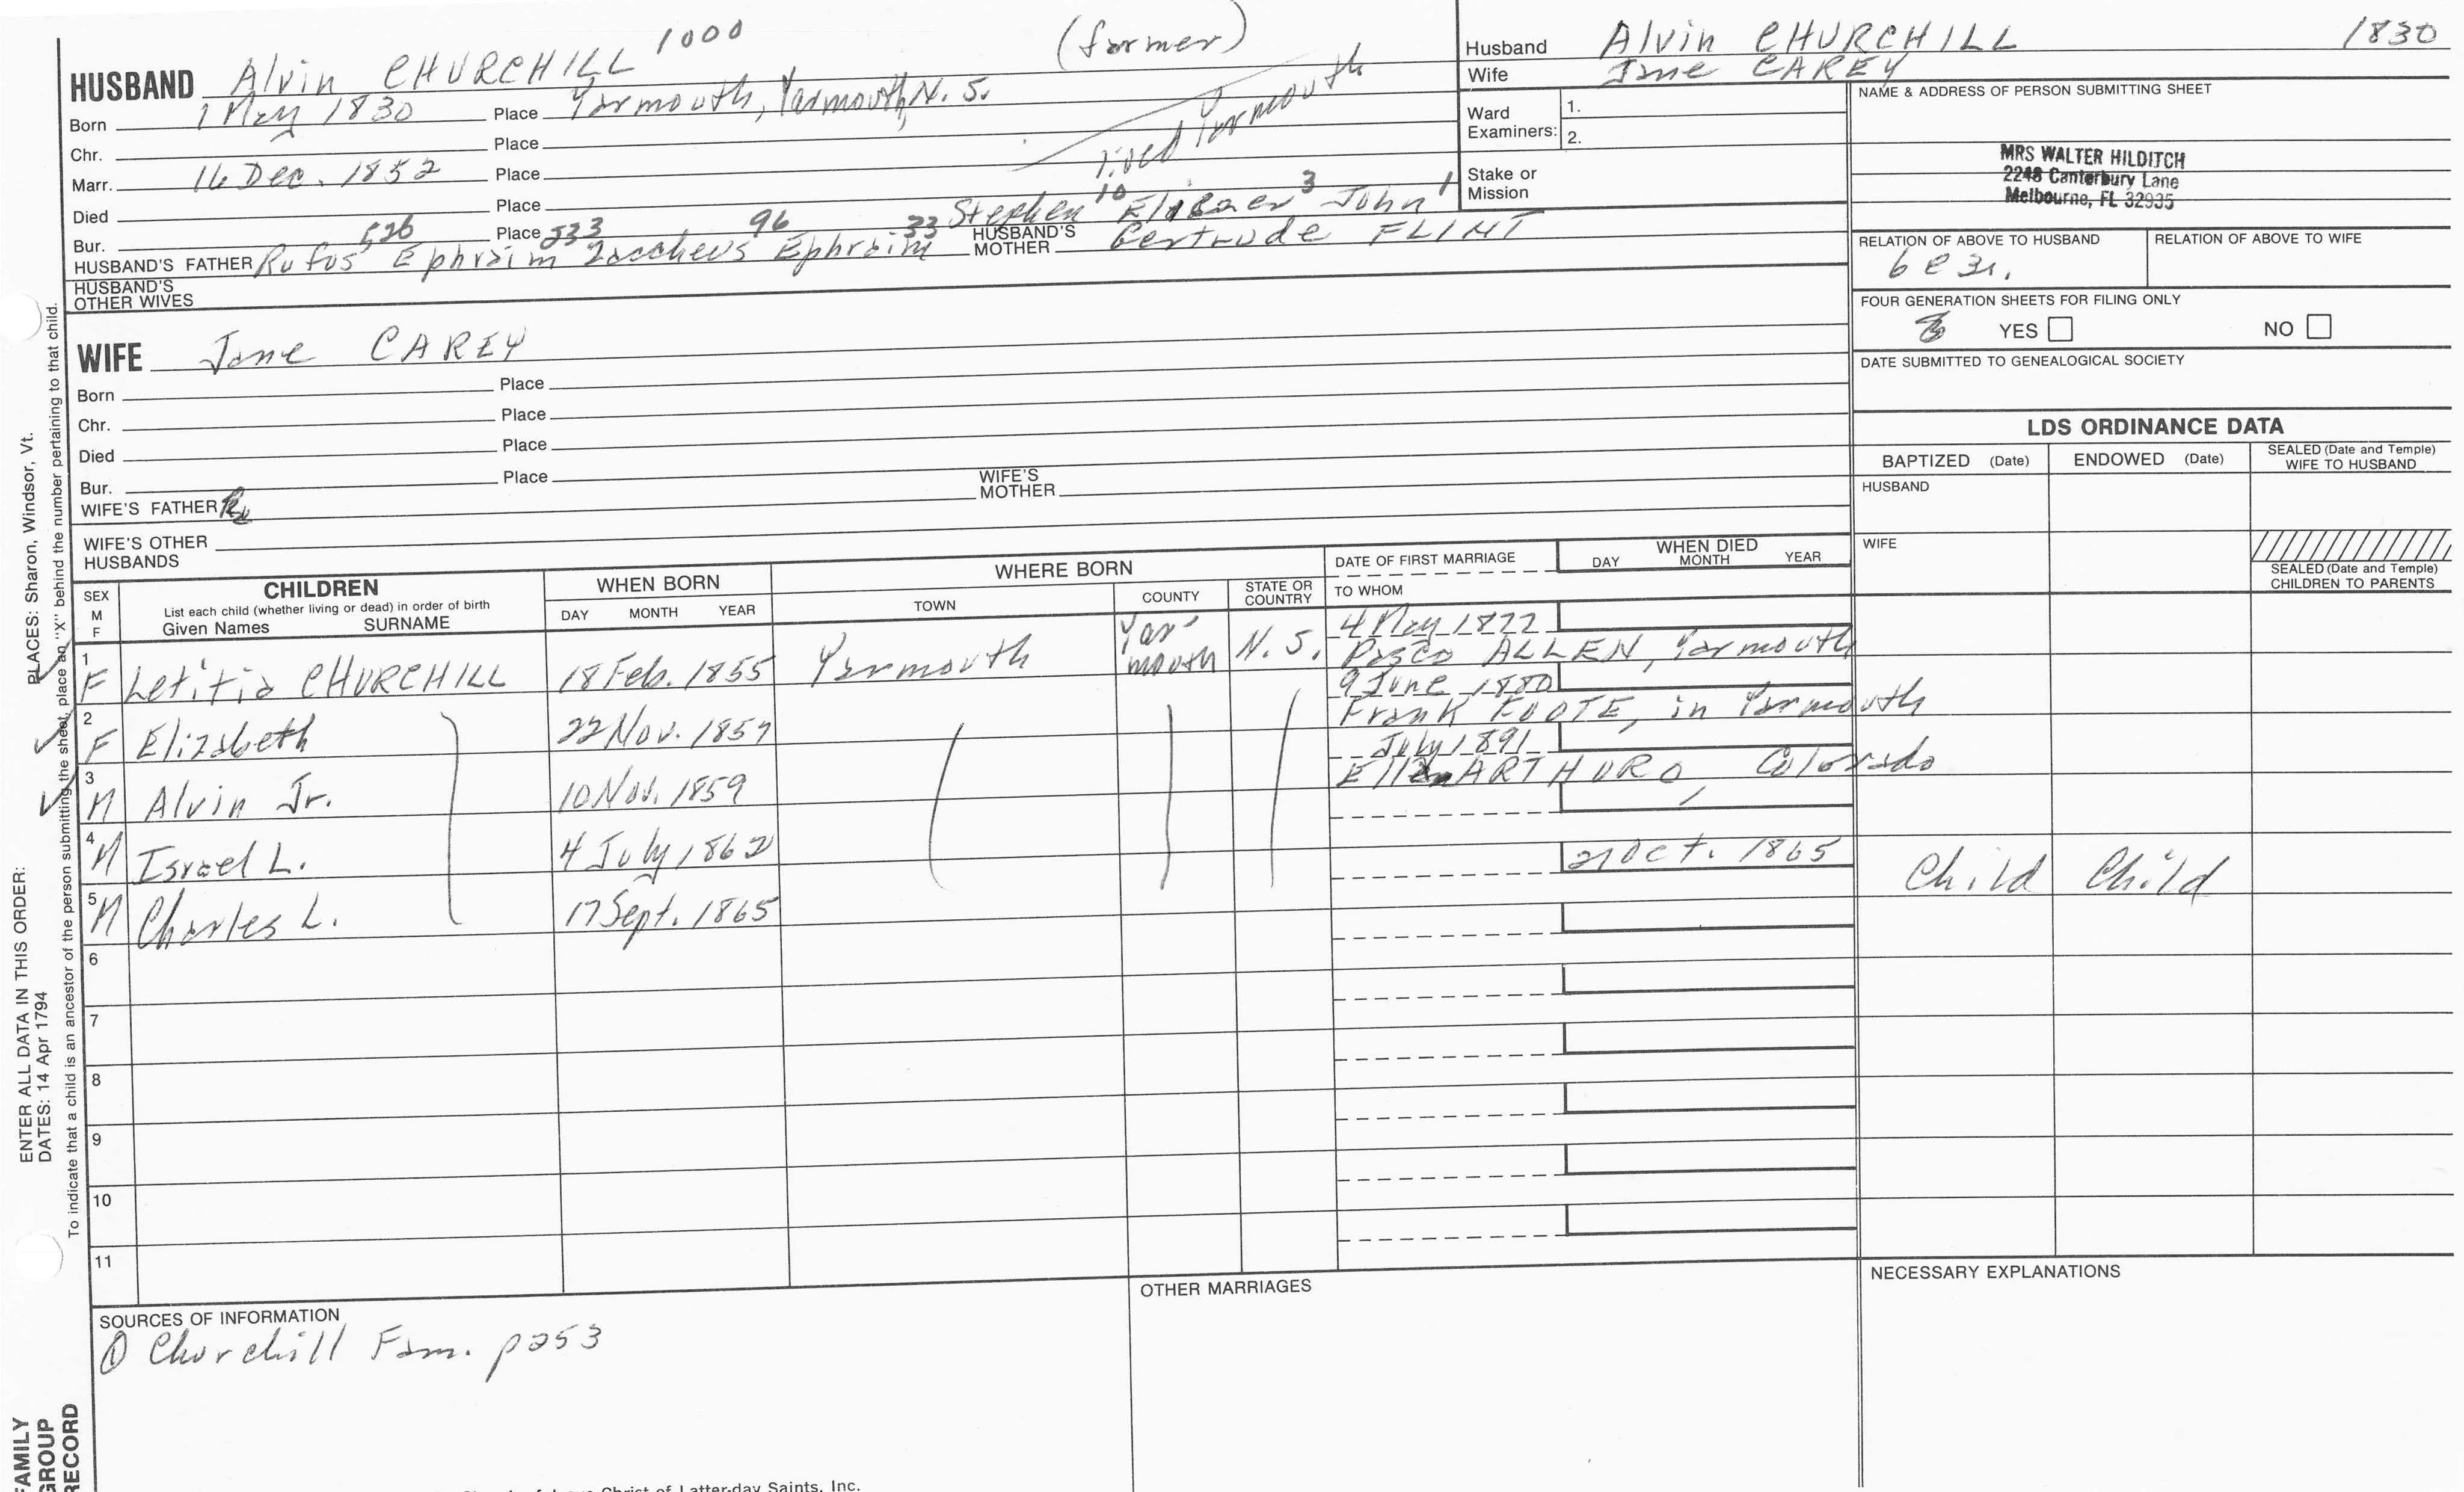 HUSBAND Alvin CHURCHILL 1000 (farmer)
Born 1 May 1830 Place Yarmouth, Yarmouth, N.S.
Chr. Place
lived Yarmouth
Marr. 16 Dec. 1852 Place
Died Place
Bur. Place
526 533 96 33 Stephen 10 Eliezer 3 John 1
HUSBAND'S FATHER Rufus Ephraim Zaccheus Ephraim HUSBAND'S MOTHER Gertrude FLINT
HUSBAND'S OTHER WIVES
Husband Alvin CHURCHILL 1830
Wife Jane CAREY
Ward Examiners: 1.
2.
Stake or Mission
NAME & ADDRESS OF PERSON SUBMITTING SHEET
MRS WALTER HILDITCH
2248 Canterbury Lane
Melbourne, FL 32935
RELATION OF ABOVE TO HUSBAND RELATION OF ABOVE TO WIFE
FOUR GENERATION SHEETS FOR FILING ONLY
YES NO
DATE SUBMITTED TO GENEALOGICAL SOCIETY
WIFE Jane CAREY
Born Place
Chr. Place
Died Place
Bur. Place
WIFE'S FATHER WIFE'S MOTHER
WIFE'S OTHER HUSBANDS
LDS ORDINANCE DATA
BAPTIZED (Date) ENDOWED (Date) SEALED (Date and Temple) WIFE TO HUSBAND
HUSBAND
WIFE
SEALED (Date and Temple) CHILDREN TO PARENTS
SEX M F
CHILDREN
List each child (whether living or dead) in order of birth
Given Names SURNAME
WHEN BORN
DAY MONTH YEAR
WHERE BORN
TOWN COUNTY STATE OR COUNTRY
DATE OF FIRST MARRIAGE
TO WHOM
WHEN DIED
DAY MONTH YEAR
4 May 1877
1 F Letitia CHURCHILL 18 Feb. 1855 Yarmouth Yarmouth N.S. ALLEN, Yarmouth
9 June 1880
2 F Elizabeth 22 Nov. 1857 Frank FOOTE, in Yarmouth
July 1891
3 M Alvin Jr. 10 Nov. 1859 Ellen ARTHURO, Colorado
4 M Israel L. 4 July 1862 21 Oct. 1865 Child Child
5 M Charles L. 17 Sept. 1865
6
7
8
9
10
11
SOURCES OF INFORMATION
① Churchill Fam. p253
OTHER MARRIAGES
NECESSARY EXPLANATIONS
PLACES: Sharon, Windsor, Vt.
ENTER ALL DATA IN THIS ORDER:
DATES: 14 Apr 1794
To indicate that a child is an ancestor of the person submitting the sheet, place an "X" behind the number pertaining to that child.
FAMILY
GROUP
RECORD
Christ of Latter-day Saints, Inc.